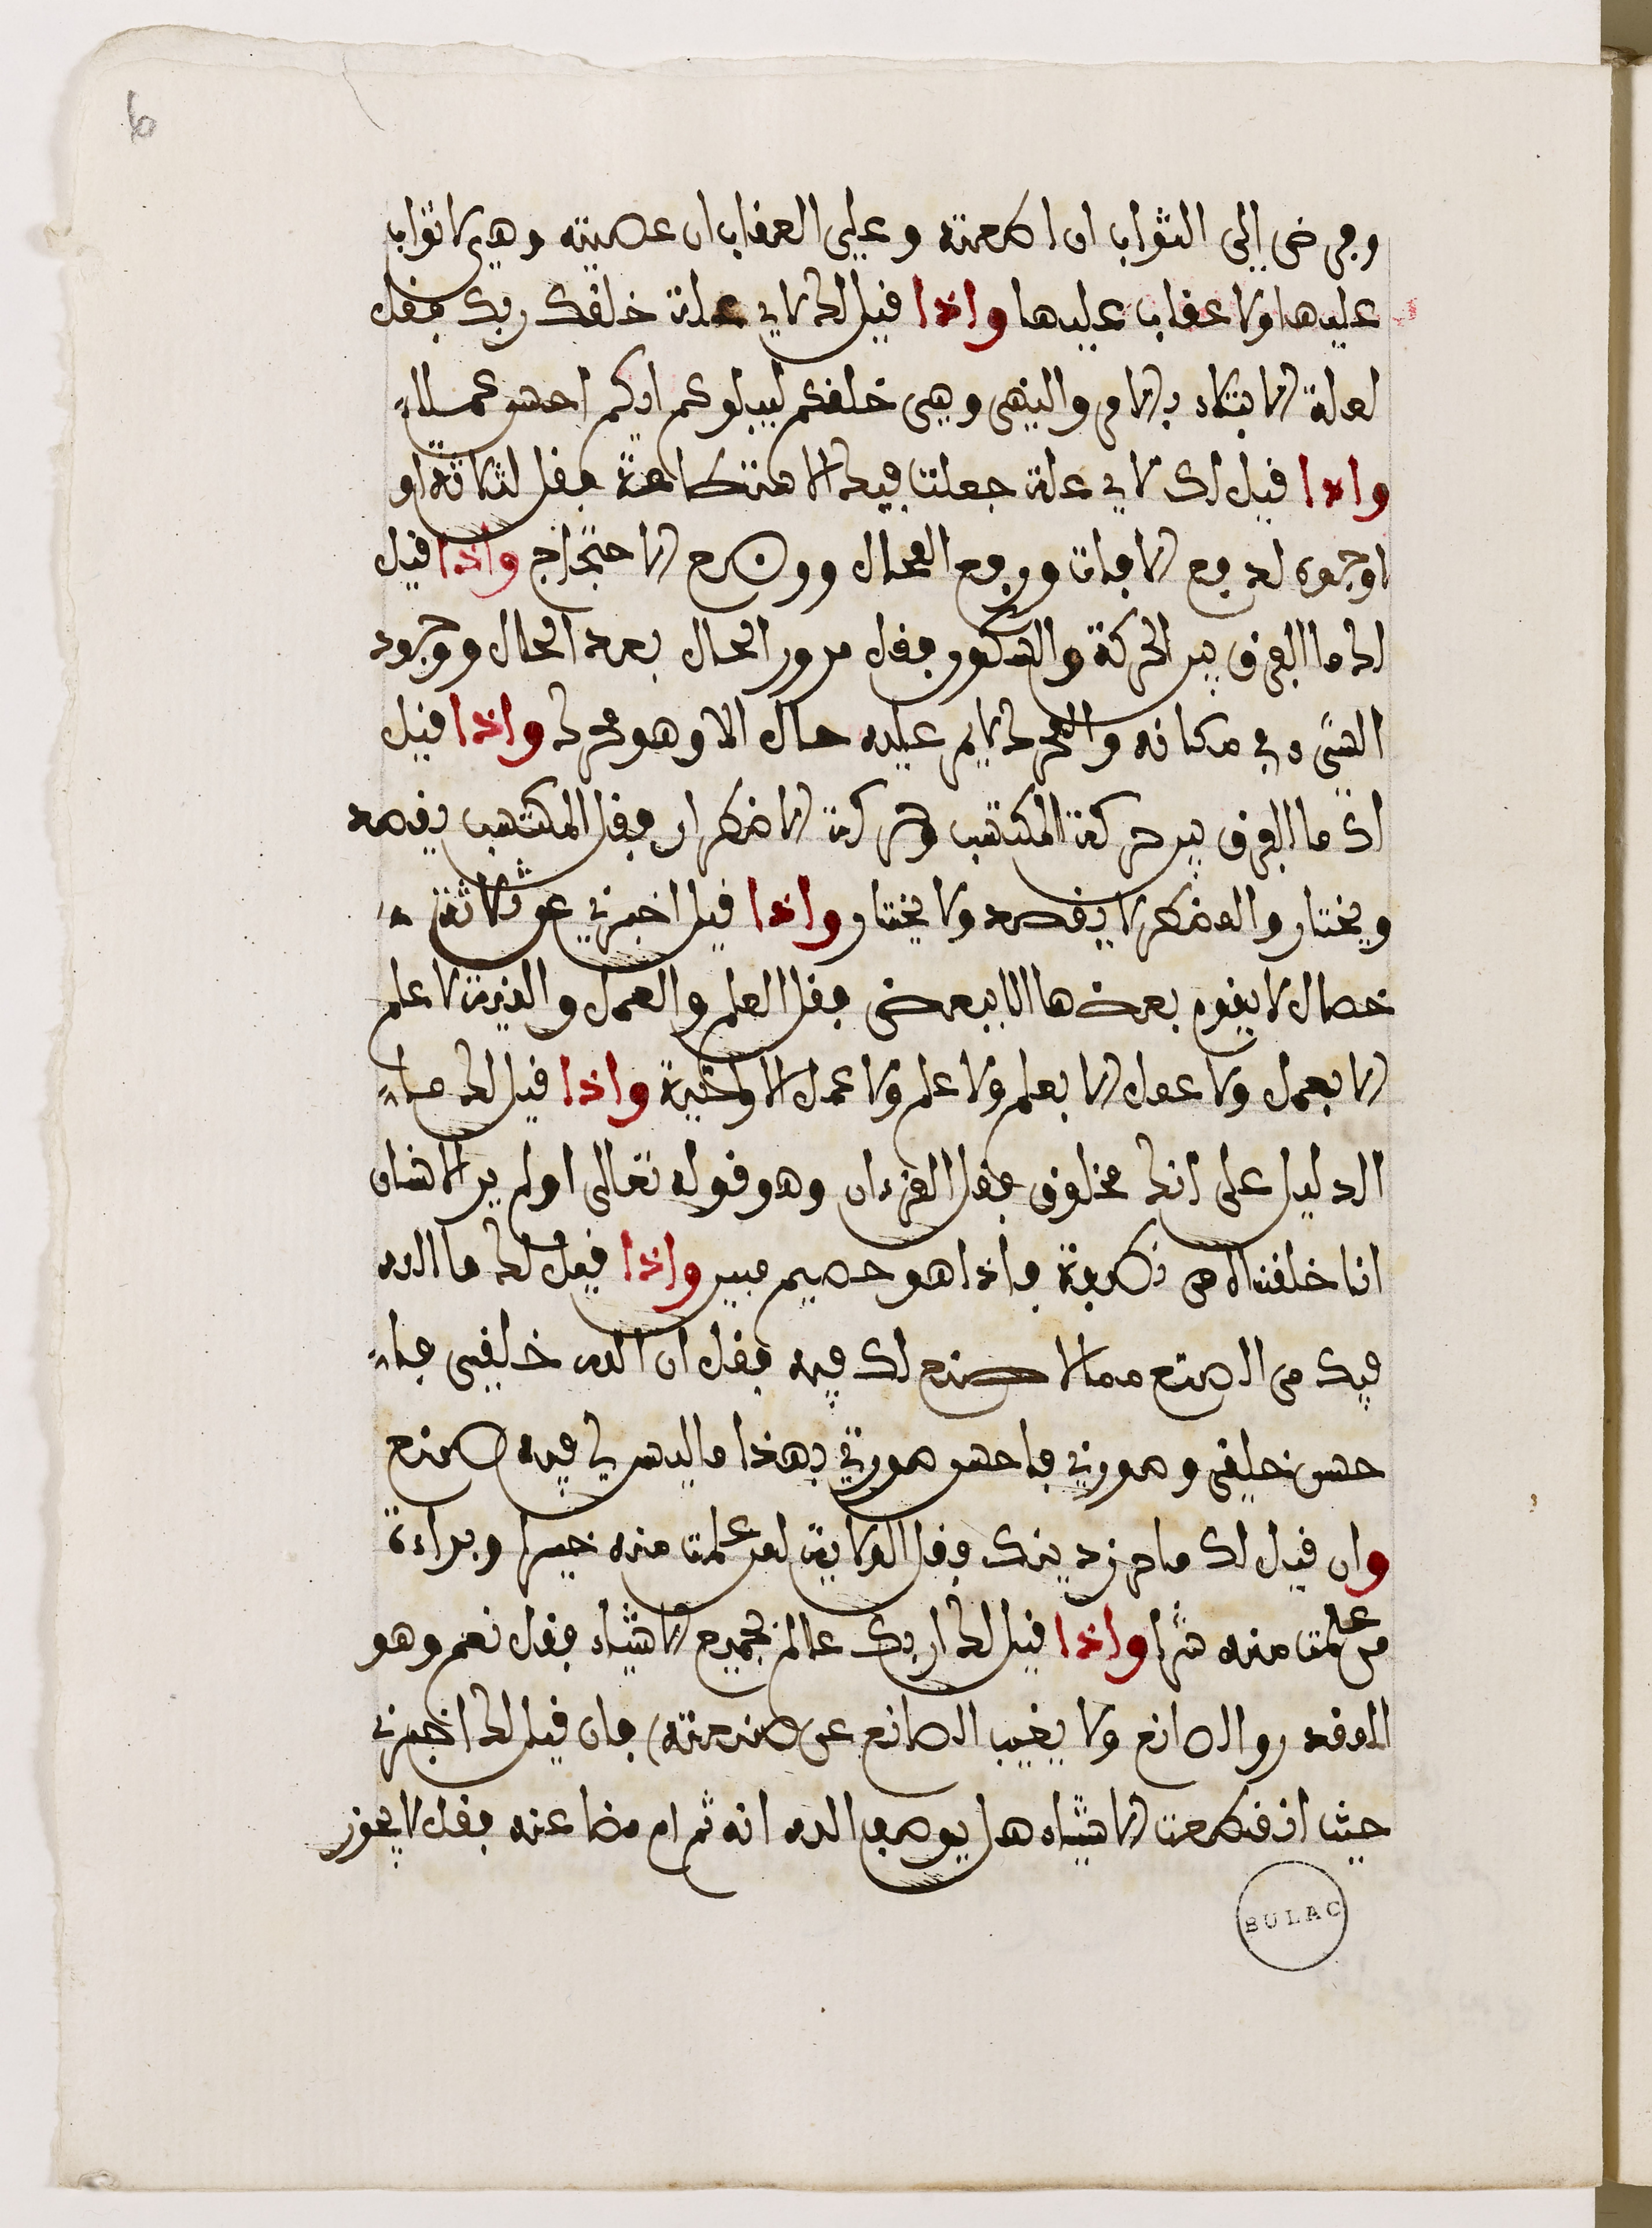 وفرضى إلى الثواب ان اطعته وعلي العقاب ان عصيته وهي لا ثواب
عليها ولا عقاب عليها واذا قيل لك لاي علة خلقك ربك فقل
لعلة الابتلاء بالامر والنهي وهي خلقكم ليبلوكم ايكم احسن عملا
واذا قيل لك لاي علة جعلت فيك الاستطاعة فقل لثلاثة او
اوجوه لدفع الافات ورفع المحال ووضع الاحتجاج واذا قيل
لك ما الفرق بين الحركة والسكون فقل مرور الحال بعد الحال ووجود
الشيء في مكانه والمحرك لا يمر عليه حال الا وهو محرك واذا قيل
لك ما الفرق بين حركة المكتسب وحركة الاضطرار فقل المكتسب يقصد
ويختار والمضطر لا يقصد ولا يختار واذا قيل اخبرني عن ثلاثة
خصال لا يقوم بعضها الا ببعض فقل العلم والعمل والنية لا علم
الا بعمل ولا عمل الا بعلم ولا علم ولا عمل الا ولنية واذا قيل لك ما
الدليل على انك مخلوق فقل القرءان وهو قوله تعالى اولم ير الانسان
انا خلقناه من نطفة فاذا هو خصيم مبين واذا قيل لك ما الله
فيك من الصنع مما لا صنع لك فيه فقل ان الله خلقني فا
حسن خلقي وصورني فاحسن صورتي بهذا ما ليس لي فيه صنع
وان قيل لك ما حرز دينك فقل الولاية لمن علمت منه خيرا وبراءة
من علمت منه شرا واذا قيل لك ان ربك عالم بجميع الاشياء فقل نعم وهو
المقدر والصانع ولا يغيب الصانع عن صنعته فان قيل لك اخبرني
حيث انقطعت الاشياء هل يوصف الله انه ثم ام مضا عنه فقل لا يجوز
BULAC
6